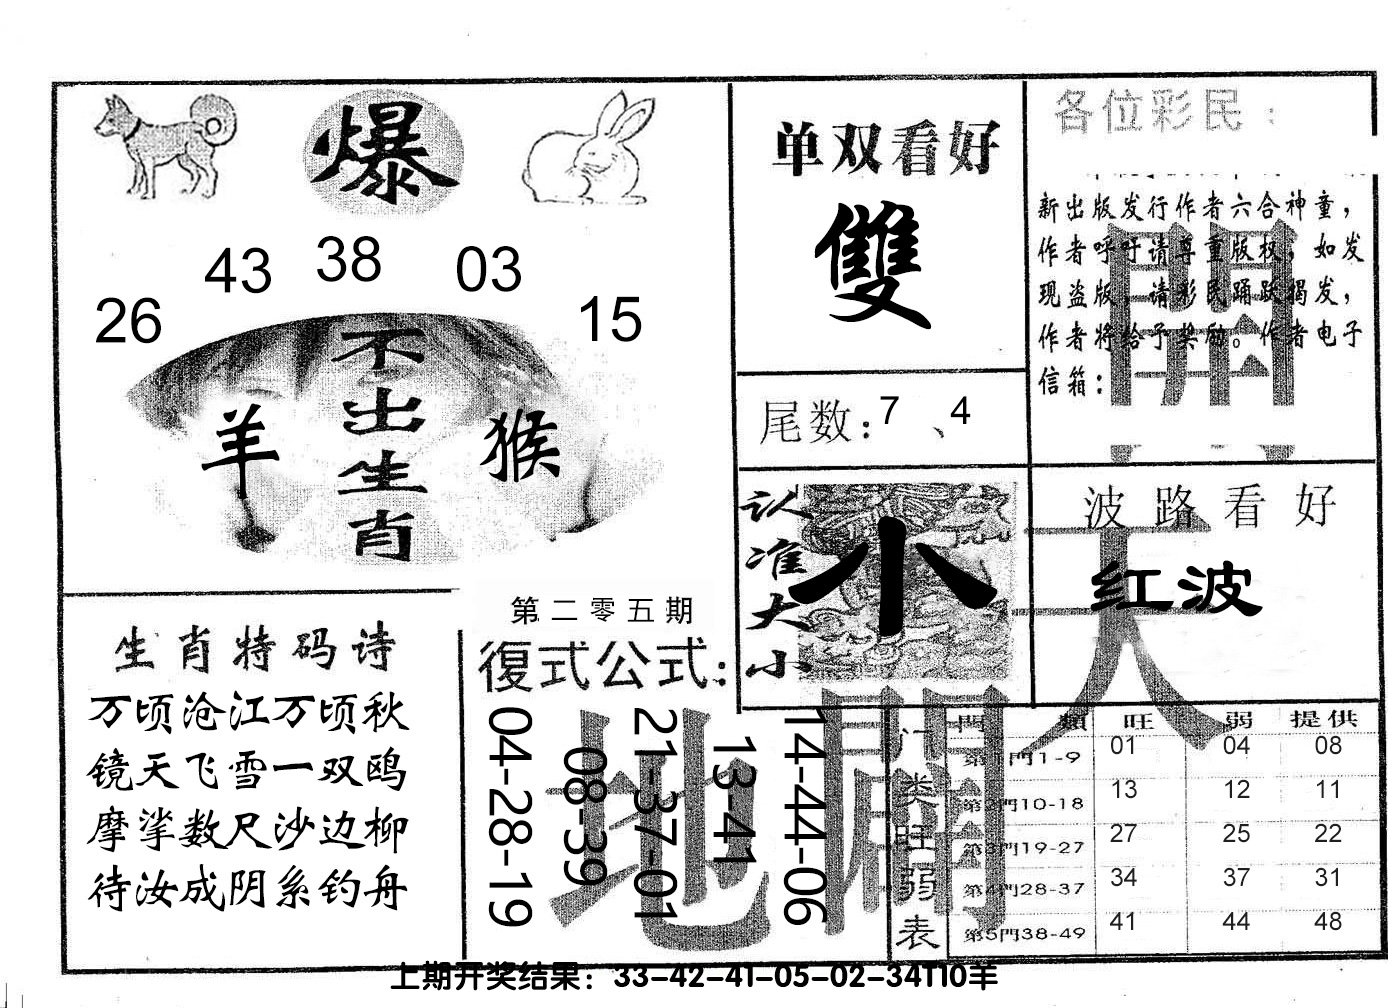 爆
43 38 03
26 15
不出生肖
羊 猴
单双看好
雙
尾数：7、4
认准大小
小
各位彩民：
新出版发行作者六合神童，
作者呼吁请尊重版权，如发
现盗版，请彩民踊跃揭发，
作者将给予奖励。作者电子
信箱：
開
波路看好
红波
天
生肖特码诗
万顷沧江万顷秋
镜天飞雪一双鸥
摩挲数尺沙边柳
待汝成阴系钓舟
第二零五期
復式公式：
04-28-19
08-39
21-37-01
13-41
14-44-06
地
闢
门类旺弱表
門類 旺 弱 提供
第1門1-9 01 04 08
第2門10-18 13 12 11
第3門19-27 27 25 22
第4門28-37 34 37 31
第5門38-49 41 44 48
上期开奖结果：33-42-41-05-02-34T10羊